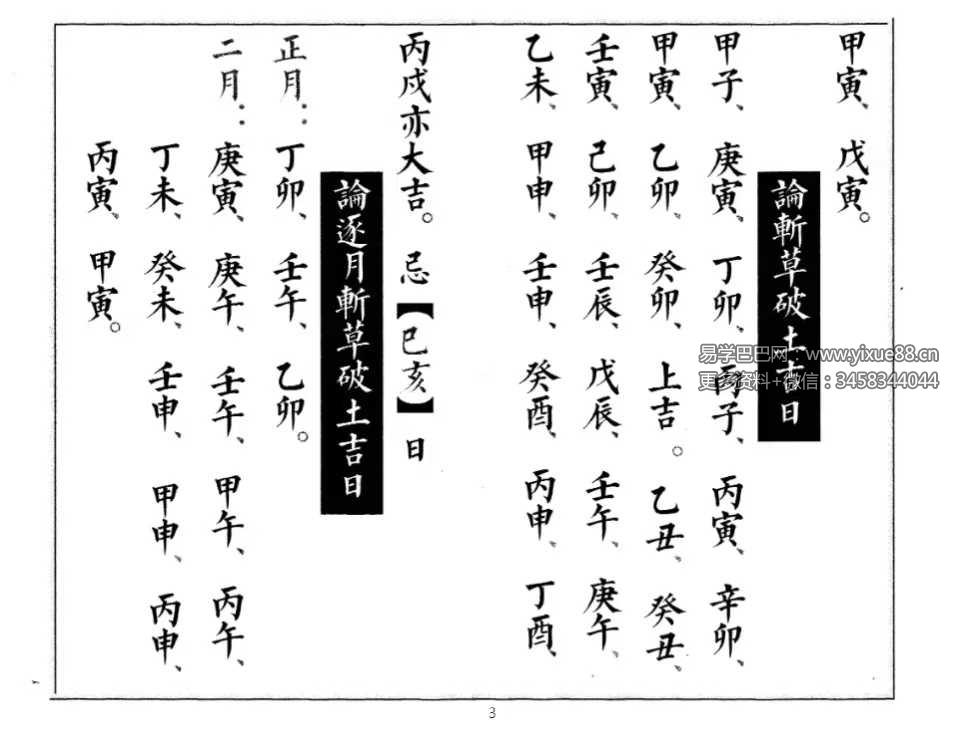 甲寅、戊寅。
論斬草破土吉日
甲子、庚寅、丁卯、丙子、丙寅、辛卯、
甲寅、乙卯、癸卯、上吉。乙丑、癸丑、
壬寅、己卯、壬辰、戊辰、壬午、庚午、
乙未、甲申、壬申、癸酉、丙申、丁酉、
丙戌亦大吉。忌【(巳亥)】日
論逐月斬草破土吉日
正月：丁卯、壬午、乙卯。
二月：庚寅、庚午、壬午、甲午、丙午、
丁未、癸未、壬申、甲申、丙申、
丙寅、甲寅。
易学巴巴网：www.yixue88.cn
更多资料+微信：3458344044
3